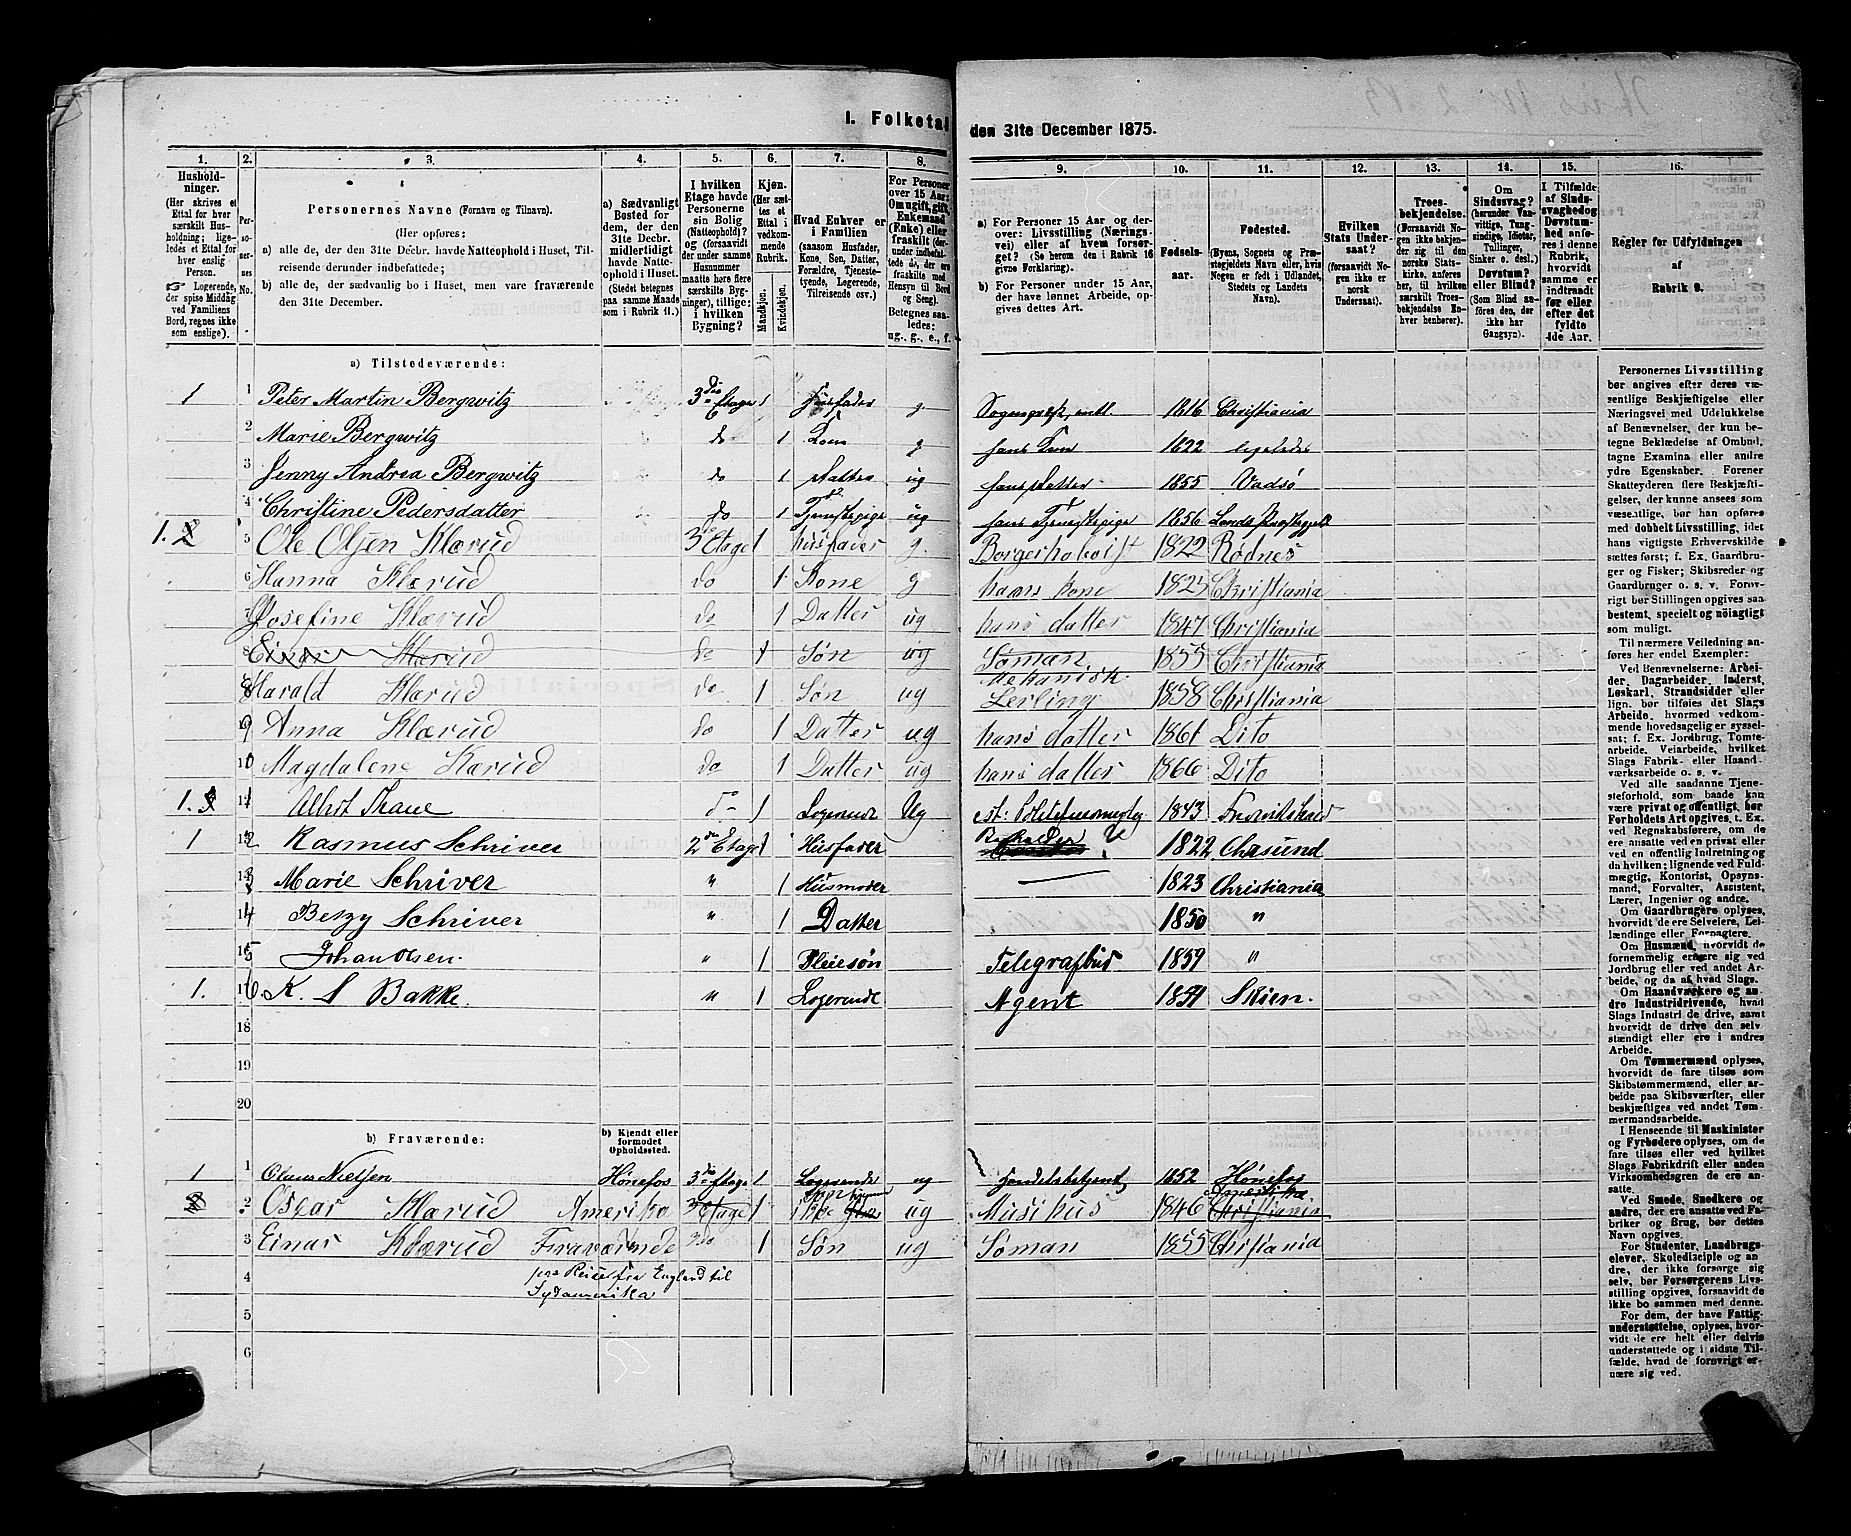 I. Folketal den 31te December 1875.
1. 2. 3. 4. 5. 6. 7. 8. 9. 10. 11. 12. 13. 14. 15. 16.
Hushold-
ninger.
(Her skrives et
Ettal for hver
særskilt Hus-
holdning; lige-
ledes et Ettal
for hver enslig
Person.
☞ Logerende,
der spise Middag
ved Familiens
Bord, regnes ikke
som enslige).
Per-
so-
ner-
nes
No.
Personernes Navne (Fornavn og Tilnavn).
(Her opføres:
a) alle de, der den 31te Decbr. havde Natteophold i Huset, Til-
reisende derunder indbefattede;
b) alle de, der sædvanlig bo i Huset, men vare fraværende
den 31te December.
a) Sædvanligt
Bosted for
dem, der den
31te Decbr.
midlertidigt
havde Natte-
ophold i Huset.
(Stedet betegnes
paa samme Maade
som i Rubrik 11.)
I hvilken
Etage havde
Personerne
sin Bolig
(Natteophold)?
og (forsaavidt
der under samme
Husnummer
maatte være flere
særskilte Byg-
ninger), tillige:
i hvilken
Bygning?
Kjøn.
(Her sæt-
tes et
Ettal i
vedkom-
mende
Rubrik.
Mandkjøn.
Kvindekjøn.
Hvad Enhver er
i Familien
(saasom Husfader,
Kone, Søn, Datter,
Forældre, Tjeneste-
tyende, Logerende,
Tilreisende osv.)
For Personer
over 15 Aar:
Om ugift, gift,
Enkemand
(Enke) eller
fraskilt
Hensyn til Bord
og Seng).
Betegnes saa-
ledes:
ug., g., e., f.
a) For Personer 15 Aar og der-
over: Livsstilling (Nærings-
vei) eller af hvem forsør-
get? (Se herom den i Rubrik 16
givne Forklaring).
b) For Personer under 15 Aar,
der have lønnet Arbeide, op-
gives dettes Art.
Fødsels-
aar.
Fødested.
(Byens, Sognets og Præ-
stegjeldets Navn eller, hvis
Nogen er født i Udlandet,
Stedets og Landets
Navn).
Hvilken
Stats Under-
saat?
(forsaavidt No-
gen ikke er
norsk
Undersaat).
Troes-
bekjendelse.
(Forsaavidt No-
gen ikke bekjen-
der sig til den
norske Stats-
kirke, anføres
her, til hvilken
særskilt Troes-
bekjendelse En-
hver henhører).
Om
Sindssvag?
(herunder Van-
vittige, Tung-
sindige, Idioter,
Tullinger,
Sinker o. desl.)
Døvstum?
eller Blind?
(Som Blind an-
føres den, der
ikke har
Gangsyn).
I Tilfælde
af Sinds-
svaghed og
Døvstum-
hed anføres
i denne
Rubrik,
hvorvidt
samme er
indtraadt
før eller
efter det
fyldte
4de Aar.
Regler for Udfyldningen
af
Rubrik 9.
a) Tilstedeværende:
1 1 Peter Martin Bergwitz 3die Etage 1 Husfader g. Sognepræst, 1816 Christiania
2 Marie Bergwitz do 1 Kone g hans Kone 1822 ligeledes
3 Jenny Andrea Bergwitz do 1 Datter ug hans Datter 1855 Vadsö
4 Christine Pedersdatter do 1 Tjenestepige ug hans Tjenestepige 1856
1. 2 5 Ole Olsen Klærud 3 Etage 1 husfader g. Borgerhaboist 1822 Rødnes
6 Hanna Klærud do 1 Kone g hans kone 1825 Christiania
7 Josefine Klærud do 1 Datter ug hans datter 1847 Christiania
8 Einar Klærud do 1 Søn ug Søman 1855 Christiania
8 Harald Klærud do 1 Søn ug Mekanisk Lerling 1858 Christiania
9 Anna Klærud do 1 Datter ug hans datter 1861 Dito
10 Magdalene Klærud do 1 Datter ug hans datter 1866 Dito
1. 11 Albert Thaue do 1 Logerende Ug 1843 Fredrikshald
1 12 Rasmus Schriver 2den Etage 1 Husfader 1822 Chrsund
13 Marie Schriver " 1 Husmoder 1823 Christiania
14 Betzy Schriver " 1 Datter 1850 "
15 Johan Olsen. " 1 Pleiesøn Telegrafbud 1859 "
1. 16 K. S Bakke. " 1 Logerende Agent 1851 Skien.
18
19
20
b) Fraværende:
b) Kjendt eller
formodet
Opholdssted.
1 1 Olaus Nielsen Hönefos 3die Etage 1 Logerende ug Handelsbetjent 1852 Hönefos
2 Oscar Klærud Amerika 3 Etage 1 ug Musikus 1846 Amerika Christiania
3 Einar Klærud Fraværende do 1 Søn ug Søman 1855 Christiania
4 paa Reise fra England til
Sydamerika
5
6
Personernes Livsstilling
bør angives efter deres væ-
sentlige Beskjæftigelse eller
Næringsvei med Udelukkelse
af Benævnelser, der kun be-
tegne Beklædelse af Ombud,
tagne Examina eller andre
ydre Egenskaber. Forener
Skatteyderen flere Beskjæfti-
gelser, der kunne ansees som
væsentlige, bør han opføres
med dobbelt Livsstilling, idet
hans vigtigste Erhvervskilde
sættes først; f. Ex. Gaardbru-
ger og Fisker; Skibsreder og
Gaardbruger o. s. v. Forøv-
rigt bør Stillingen opgives saa
bestemt, specielt og nöiagtigt
som muligt.
Til nærmere Veiledning an-
føres her endel Exempler:
Ved Benævnelserne: Arbei-
der, Dagarbeider, Inderst,
Løskarl, Strandsidder eller
lign. bør tilføies det Slags
Arbeide, hvormed vedkom-
mende hovedsagelig er syssel-
sat; f. Ex. Jordbrug, Tomte-
arbeide, Veiarbeide, hvilket
Slags Fabrik- eller Haand-
værksarbeide o. s. v.
Ved alle saadanne Tjene-
steforhold, som baade kan
være privat og offentligt, bør
Forholdets Art opgives, t. Ex.
ved Regnskabsførere, om de
ere ansatte ved en privat eller
ved en offentlig Indretning og
da hvilken; lignende ved Fuld-
mægtig, Kontorist, Opsyns-
mand, Forvalter, Assistent,
Lærer, Ingeniør og andre.
Om Gaardbrugere oplyses,
hvorvidt de ere Selveiere, Lei-
lændinge eller Forpagtere.
Om Husmænd, hvorvidt de
fornemmelig ernære sig ved
Jordbrug eller ved andet Ar-
beide, og da af hvad Slags.
Om Haandværkere og an-
dre Industridrivende, hvad
Slags Industri de drive, samt
hvorvidt de drive den selv-
stændigt eller ere i andres
Arbeide.
Om Tømmermænd oplyses,
hvorvidt de fare tilsøs som
Skibstømmermænd, eller ar-
beide paa Skibsværfter, eller
beskjæftiges ved andet Tøm-
mermandsarbeide.
I Henseende til Maskinister
og Fyrbødere oplyses, om de
fare tilsøs eller ved hvilket
Slags Fabrikdrift eller anden
Virksomhedsgren de ere an-
satte.
Ved Smede, Snedkere og
andre, der ere ansatte ved Fa-
briker og Brug, bør dettes
Navn opgives.
For Studenter, Landbrugs-
elever, Skoledisciple og an-
dre, der ikke forsørge sig
selv, bør Forsørgerens Livs-
stilling opgives, forsaavidt de
ikke bo sammen med denne.
For dem, der have Fattig-
understøttelse, oplyses, hvor-
vidt de ere helt eller delvis
understøttede og i sidste Til-
fælde, hvad de forøvrigt er-
nære sig ved.